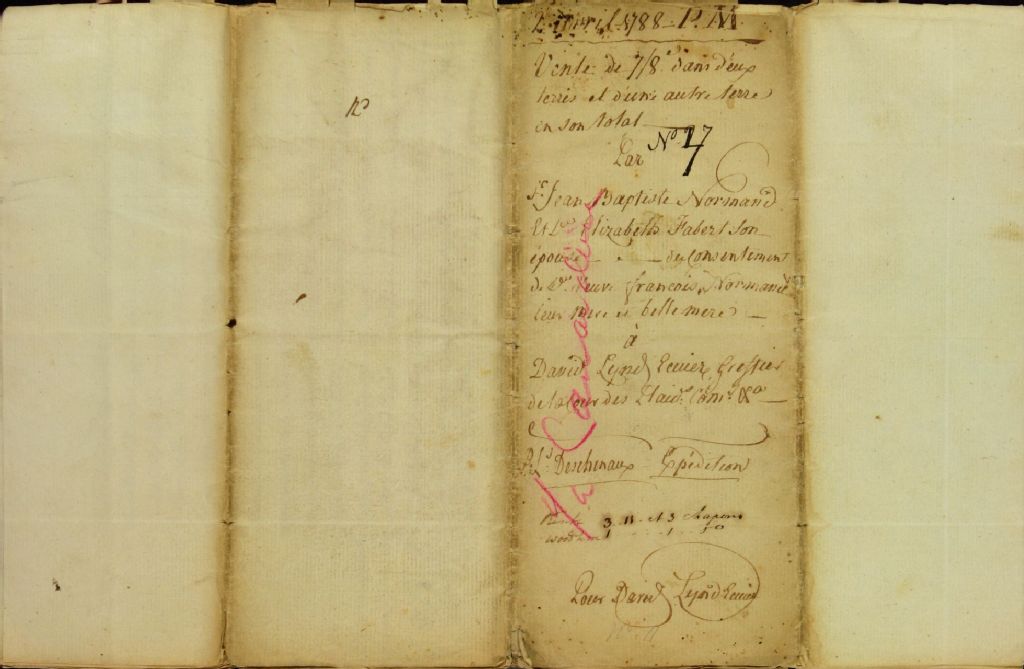 2 avril 1788 - P. M.
Vente de 7/8e dans deux
terres et d'une autre terre
en son total
Par
No. 27
Sr. Jean Baptiste Normand
Et De. Elizabeth Fabert son
épouse - du consentement
de De. Veuve François Normand
leur mere et belle mere
à
David Lynd Ecuier Greffier
de la Cour des Plaids Coms. &a
Deschenaux Expédition
3 11 et 3 chapons
Pour David Lynd Ecuier